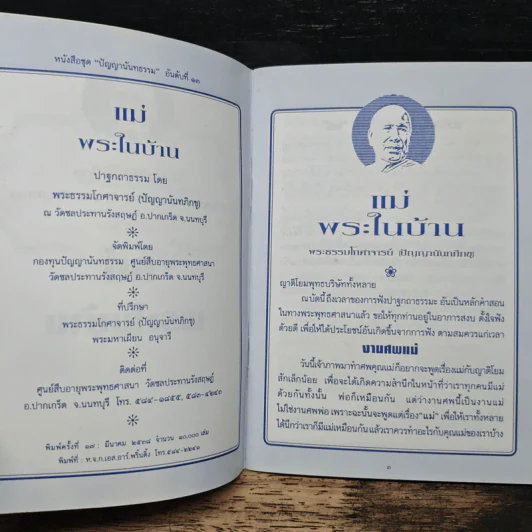 หนังสือชุด "ปัญญานันทธรรม" อันดับที่ ๑๓
แม่
พระในบ้าน
ปาฐกถาธรรม โดย
พระธรรมโกศาจารย์ (ปัญญานันทภิกขุ)
ณ วัดชลประทานรังสฤษฎ์ อ.ปากเกร็ด จ.นนทบุรี
จัดพิมพ์โดย
กองทุนปัญญานันทธรรม ศูนย์สืบอายุพระพุทธศาสนา
วัดชลประทานรังสฤษฎ์ อ.ปากเกร็ด จ.นนทบุรี
ที่ปรึกษา
พระธรรมโกศาจารย์ (ปัญญานันทภิกขุ)
พระมหาเฉียน อนุจารี
ติดต่อที่
ศูนย์สืบอายุพระพุทธศาสนา วัดชลประทานรังสฤษฎ์
อ.ปากเกร็ด จ.นนทบุรี โทร.
พิมพ์ครั้งที่ ๑๗ : มีนาคม ๒๕๓๘ จำนวน ๑๐,๐๐๐ เล่ม
พิมพ์ที่ : ห.จ.ก.เอส.อาร์.พริ้นติ้ง
แม่
พระในบ้าน
พระธรรมโกศาจารย์ (ปัญญานันทภิกขุ)
ญาติโยมพุทธบริษัททั้งหลาย
ณ บัดนี้ ถึงเวลาของการฟังปาฐกถาธรรมะ อันเป็นหลักคำสอน
ในทางพระพุทธศาสนาแล้ว ขอให้ทุกท่านอยู่ในอาการสงบ ตั้งใจฟัง
ด้วยดี เพื่อให้ได้ประโยชน์อันเกิดขึ้นจากการฟัง ตามสมควรแก่เวลา
งานศพแม่
วันนี้เจ้าภาพมาทำศพคุณแม่ก็อยากจะพูดเรื่องแม่กับญาติโยม
สักเล็กน้อย เพื่อจะได้เกิดความสำนึกในหน้าที่ว่าเราทุกคนมีแม่
ด้วยกันทั้งนั้น พ่อก็เหมือนกัน แต่ว่างานศพนี้เป็นงานแม่
ไม่ใช่งานศพพ่อ เพราะฉะนั้นจะพูดแต่เรื่อง "แม่" เพื่อให้เราทั้งหลาย
ได้นึกว่าเราก็มีแม่เหมือนกัน แล้วเราควรทำอะไรกับคุณแม่ของเราบ้าง